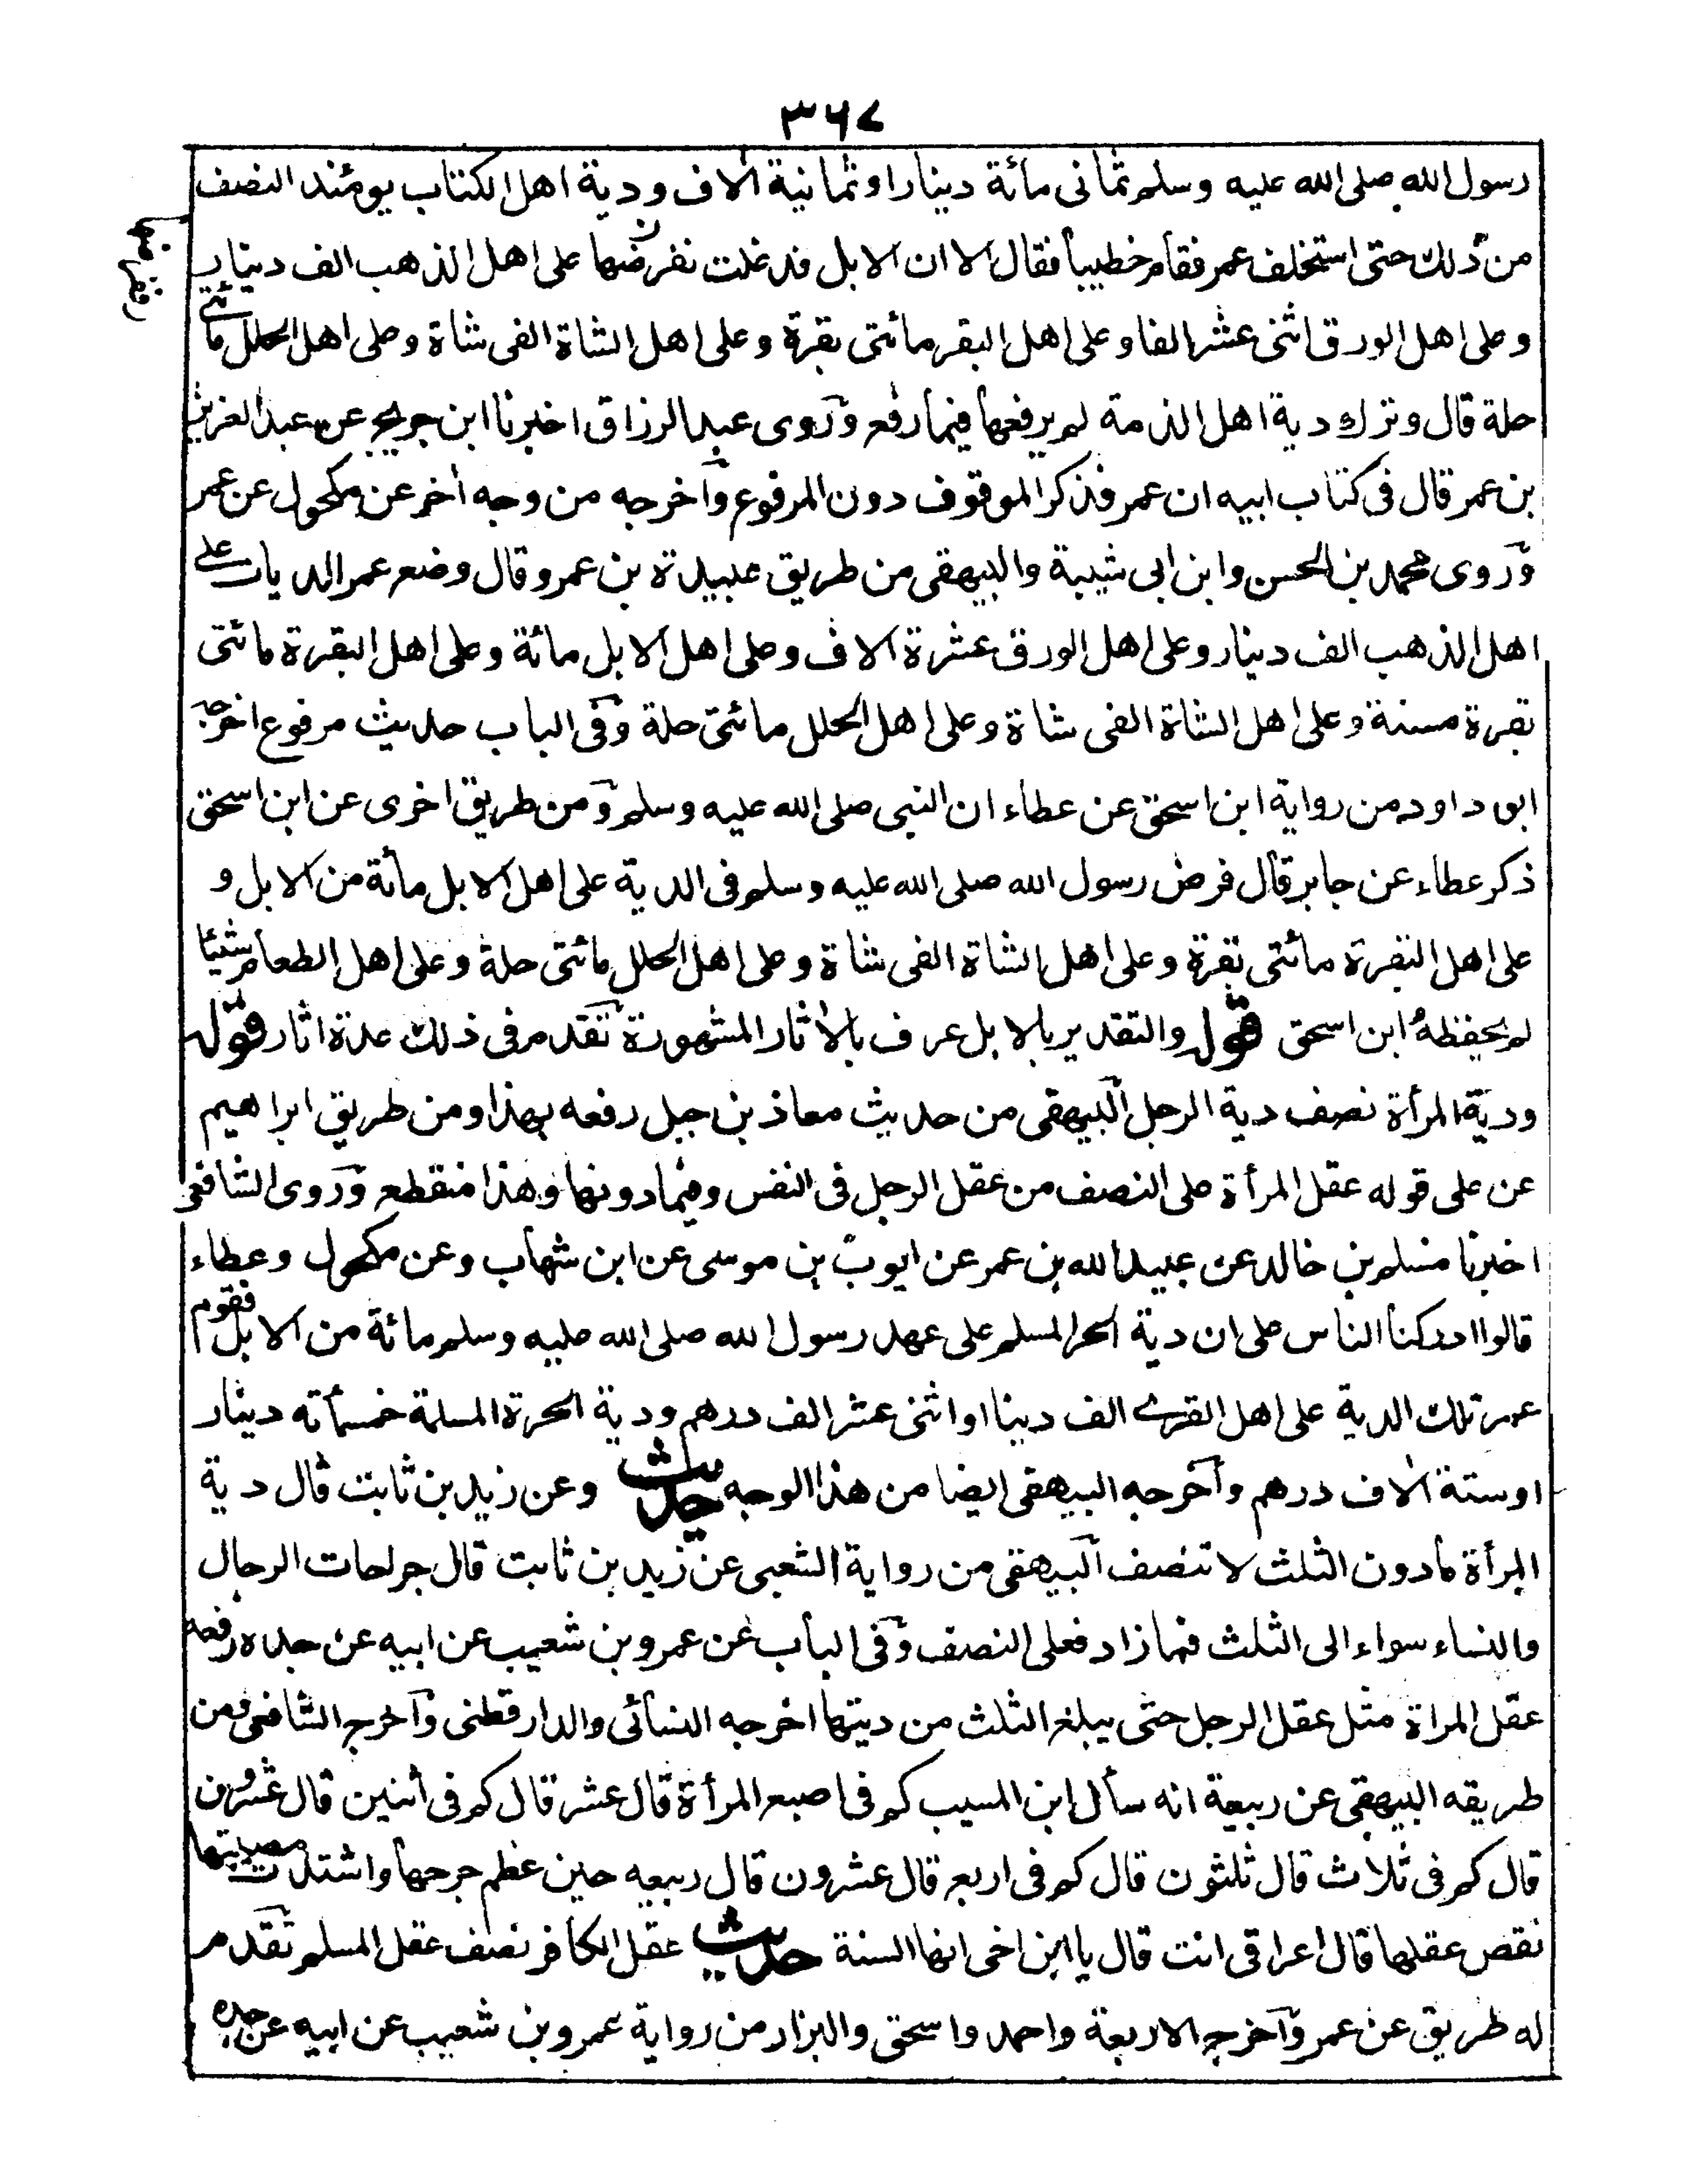 ٣٦٧
رسول الله صلى الله عليه وسلم ثمانى مائة دينار او ثمانية الاف ودية اهل الكتاب يومئذ النصف
من ذلك حتى استخلف عمر فقام خطيبا فقال الا ان الابل قد غلت نفرضها على اهل الذهب الف دينار
وعلى اهل الورق اثنى عشر الفا وعلى اهل البقر مائتى بقرة وعلى اهل الشاة الفى شاة وعلى اهل الحلل مائتے
حلة قال وترك دية اهل الذمة لم يرفعها فيما رفع وروى عبد الرزاق اخبرنا ابن جريج عن عبد العزيز
بن عمر قال فى كتاب ابيه ان عمر فذكر الموقوف دون المرفوع واخرجه من وجه اخر عن مكحول عن عمر
وروى محمد بن الحسن وابن ابى شيبة والبيهقى من طريق عبيدة بن عمرو قال وضع عمر الديات علے
اهل الذهب الف دينار وعلى اهل الورق عشرة الاف وعلى اهل الابل مائة وعلى اهل البقرة مائتى
بقرة مسنة وعلى اهل الشاة الفى شاة وعلى اهل الحلل مائتى حلة وفى الباب حديث مرفوع اخرجه
ابو داود من رواية ابن اسحق عن عطاء ان النبى صلى الله عليه وسلم ومن طريق اخرى عن ابن اسحق
ذكر عطاء عن جابر قال فرض رسول الله صلى الله عليه وسلم فى الدية على اهل الابل مائة من الابل و
على اهل البقرة مائتى بقرة وعلى اهل الشاة الفى شاة وعلى اهل الحلل مائتى حلة وعلى اهل الطعام شيئا
لم يحفظه ابن اسحق قوله والتقدير بالابل عرف بالاثار المشهورة تقدم فى ذلك عدة اثار قوله
ودية المرأة نصف دية الرجل البيهقى من حديث معاذ بن جبل رفعه بهذا ومن طريق ابراهيم
عن على قوله عقل المرأة على النصف من عقل الرجل فى النفس وفيما دونها وهذا منقطع وروى الشافعى
اخبرنا مسلم بن خالد عن عبيد الله بن عمر عن ايوب بن موسى عن ابن شهاب وعن مكحول وعطاء
قالوا ادركنا الناس على ان دية الحر المسلم على عهد رسول الله صلى الله عليه وسلم مائة من الابل فقوم
عمر تلك الدية على اهل القرے الف دينا او اثنى عشر الف درهم ودية الحرة المسلمة خمسمأته دينار
او ستة الاف درهم واخرجه البيهقى ايضا من هذا الوجه حديث وعن زيد بن ثابت قال دية
المرأة مادون الثلث لا تنصف البيهقى من رواية الشعبى عن زيد بن ثابت قال جراحات الرجال
والنساء سواء الى الثلث فما زاد فعلى النصف وفى الباب عن عمرو بن شعيب عن ابيه عن جده رفعه
عقل المراة مثل عقل الرجل حتى يبلغ الثلث من ديتها اخرجه النسائى والدارقطنى واخرج الشافعى ومن
طريقه البيهقى عن ربيعة انه سأل ابن المسيب كم فى اصبع المرأة قال عشر قال كم فى أثنين قال عشرون
قال كم فى ثلاث قال ثلثون قال كم فى اربع قال عشرون قال ربيعه حين عظم جرحها واشتدت مصيبتها
نقص عقلها قال اعراقى انت قال يا ابن اخى انها السنة حديث عقل الكافر نصف عقل المسلم تقدم
له طريق عن عمر واخرجه الاربعة واحمد واسحق والبزار من رواية عمرو بن شعيب عن ابيه عن جده